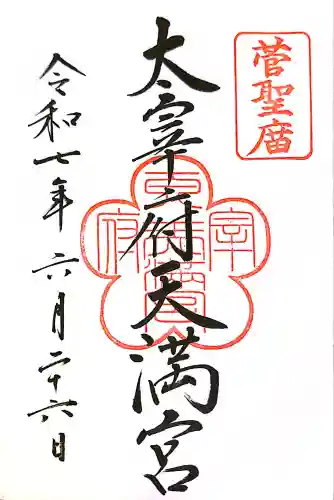 菅聖庿
太宰府天満宮
令和七年六月二十六日